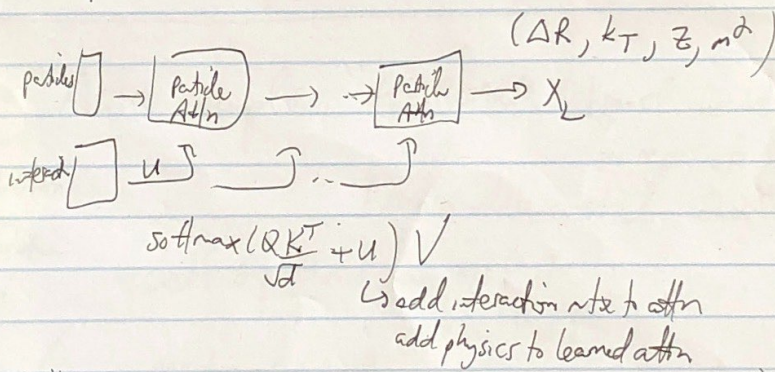 (ΔR, k_T, z, m²)
particles → Particle Attn → ...→ Particle Attn → X_L
interact U ...
softmax(QK^T/√d + U) V
↳ add interaction mtx to attn
add physics to learned attn